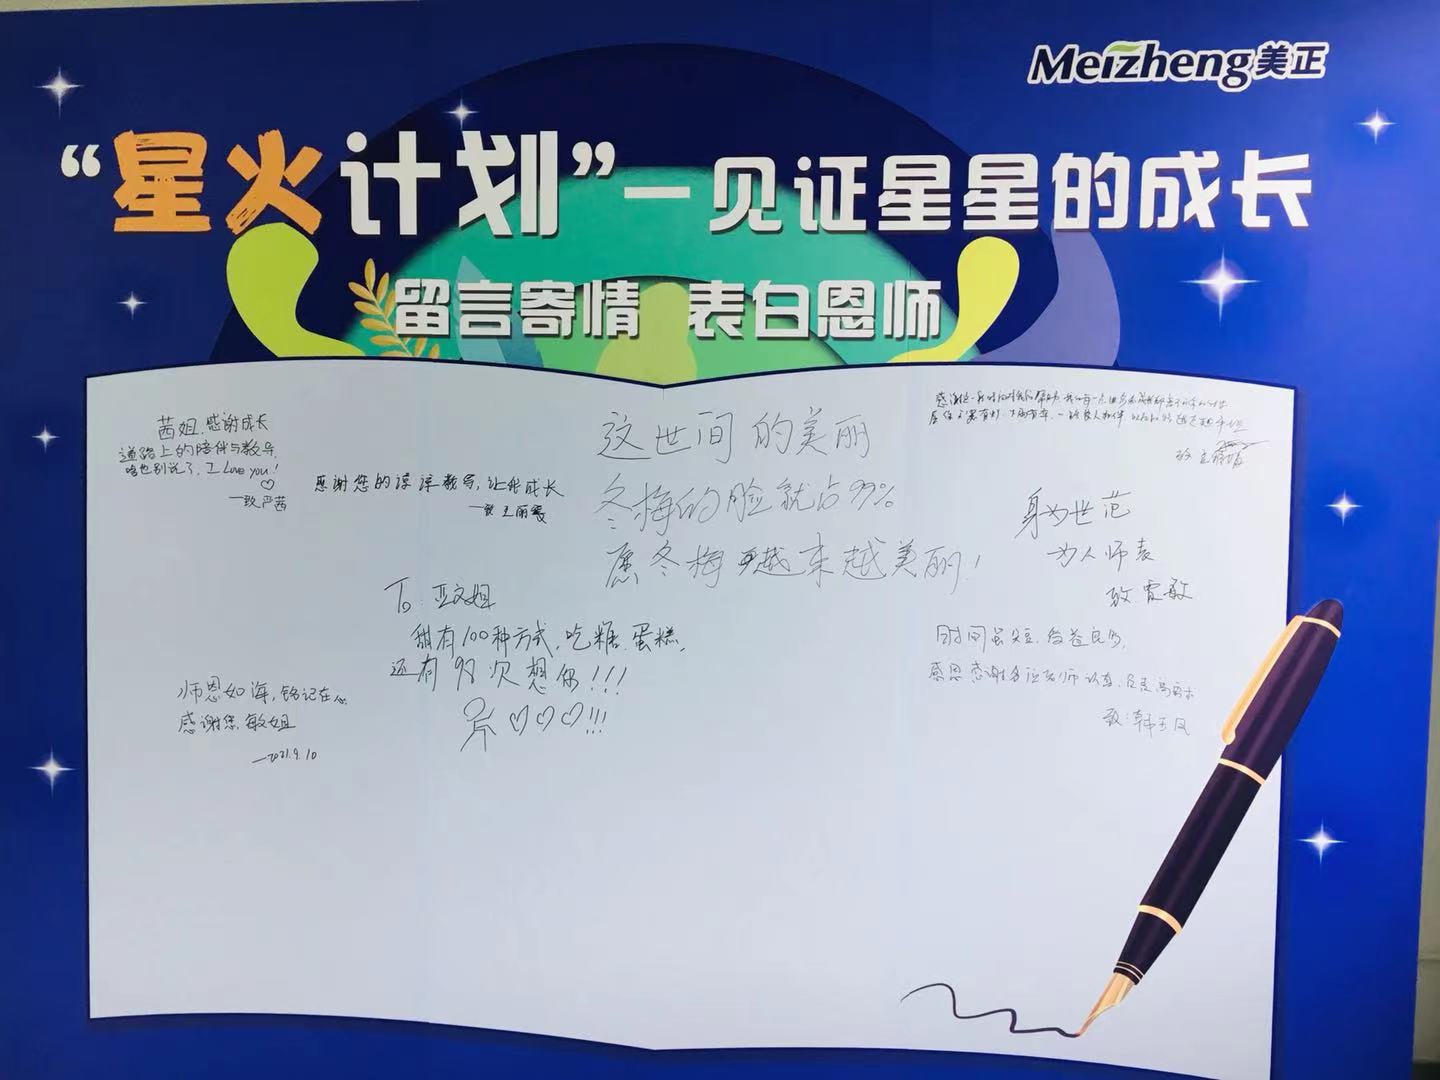 Meizheng美正
“星火计划”—见证星星的成长
留言寄情 表白恩师
茜姐,感谢成长
道路上的陪伴与教导,
啥也别说了,I Love you!
—致严茜
感谢您的谆谆教导,让我成长
—致王丽
To:亚文姐
甜有100种方式,吃糖,蛋糕,
还有98次想你!!!
!!!
师恩如海,铭记在心
感谢您敏姐
—2021.9.10
这世间的美丽
冬梅的脸就占99%
愿冬梅越来越美丽!
感谢
身为世范
为人师表
致 敏
时间虽短,受益良多,
感恩感谢各位老师认真、
致:韩玉凤